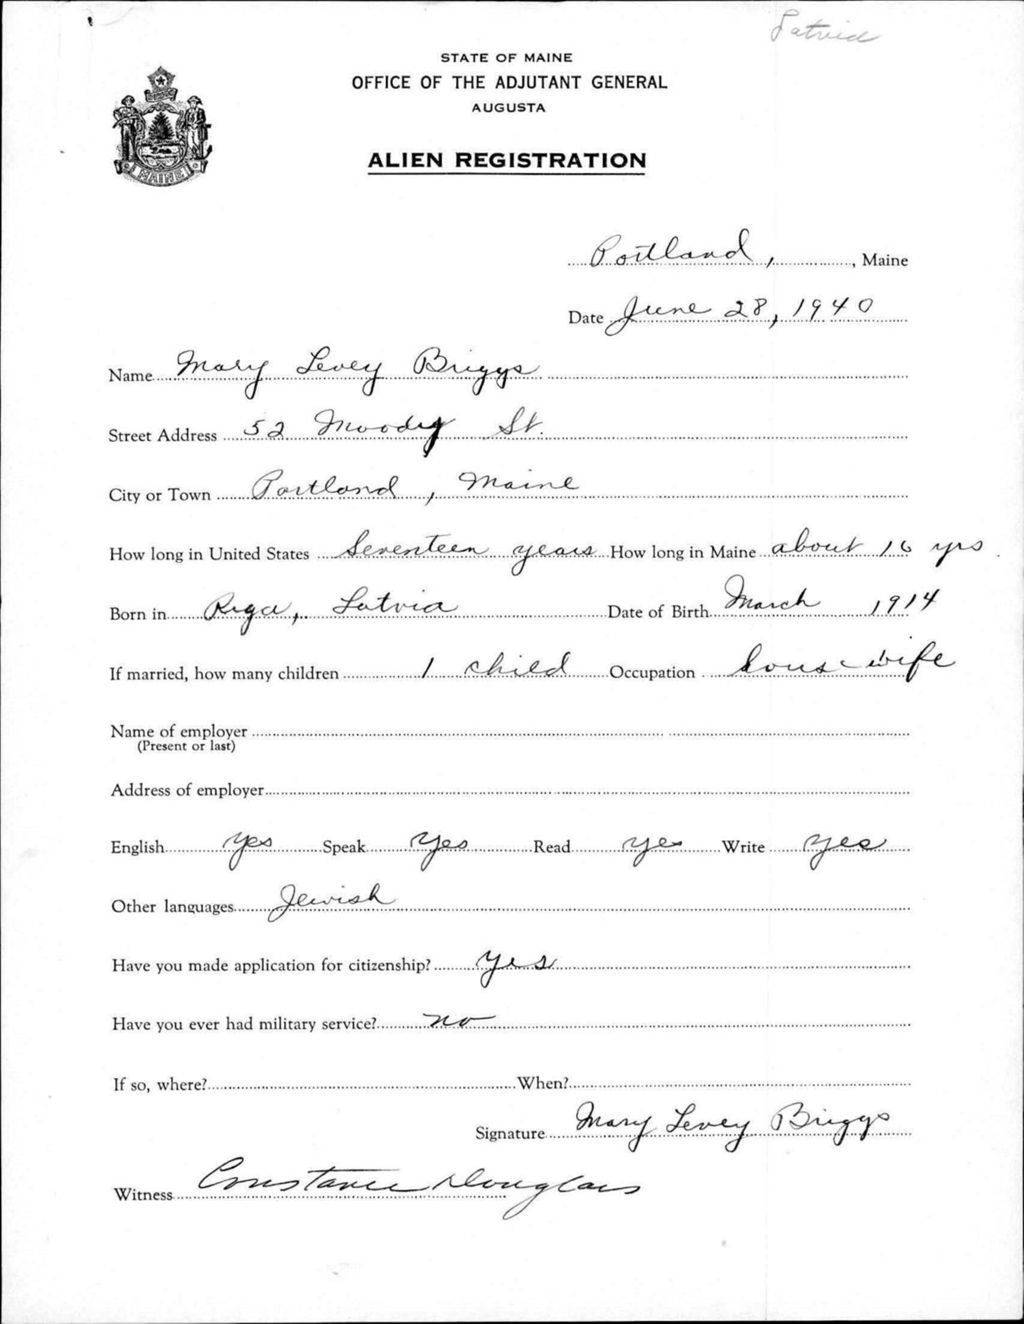 Latvia
STATE OF MAINE
OFFICE OF THE ADJUTANT GENERAL
AUGUSTA
MAINE
ALIEN REGISTRATION
Portland, , Maine
Date June 28, 1940
Name Mary Levey Briggs
Street Address 52 Moody St.
City or Town Portland, Maine
How long in United States Seventeen years How long in Maine about 16 yrs.
Born in Riga, Latvia Date of Birth March 1914
If married, how many children 1 child Occupation housewife
Name of employer
(Present or last)
Address of employer
English yes Speak yes Read yes Write yes
Other languages Jewish
Have you made application for citizenship? yes
Have you ever had military service? no
If so, where? When?
Signature Mary Levey Briggs
Witness Constance Douglass